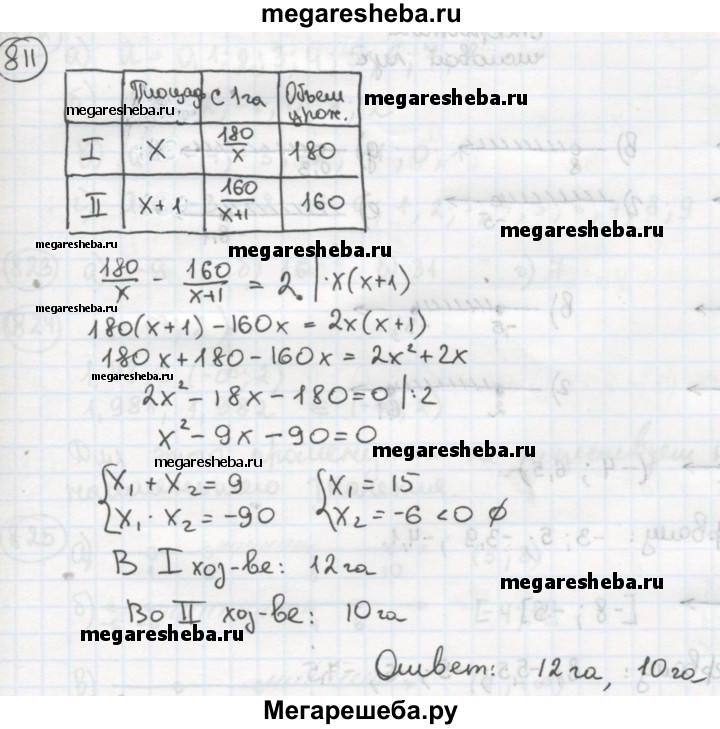 megaresheba.ru
811
Площад С 1га Объем урож.
megaresheba.ru
megaresheba.ru
I x 180/x 180
II x+1 160/x+1 160
megaresheba.ru
megaresheba.ru
megaresheba.ru
180/x - 160/x+1 = 2 |·x(x+1)
megaresheba.ru
180(x+1) - 160x = 2x(x+1)
180x + 180 - 160x = 2x² + 2x
megaresheba.ru
2x² - 18x - 180 = 0 |:2
x² - 9x - 90 = 0
megaresheba.ru
{x₁ + x₂ = 9 {x₁ = 15
{x₁ · x₂ = -90 {x₂ = -6 < 0 ∅
В I хоз-ве: 12га
megaresheba.ru
Во II хоз-ве: 10га
megaresheba.ru
Ответ: 12га, 10га
Мегарешеба.ру